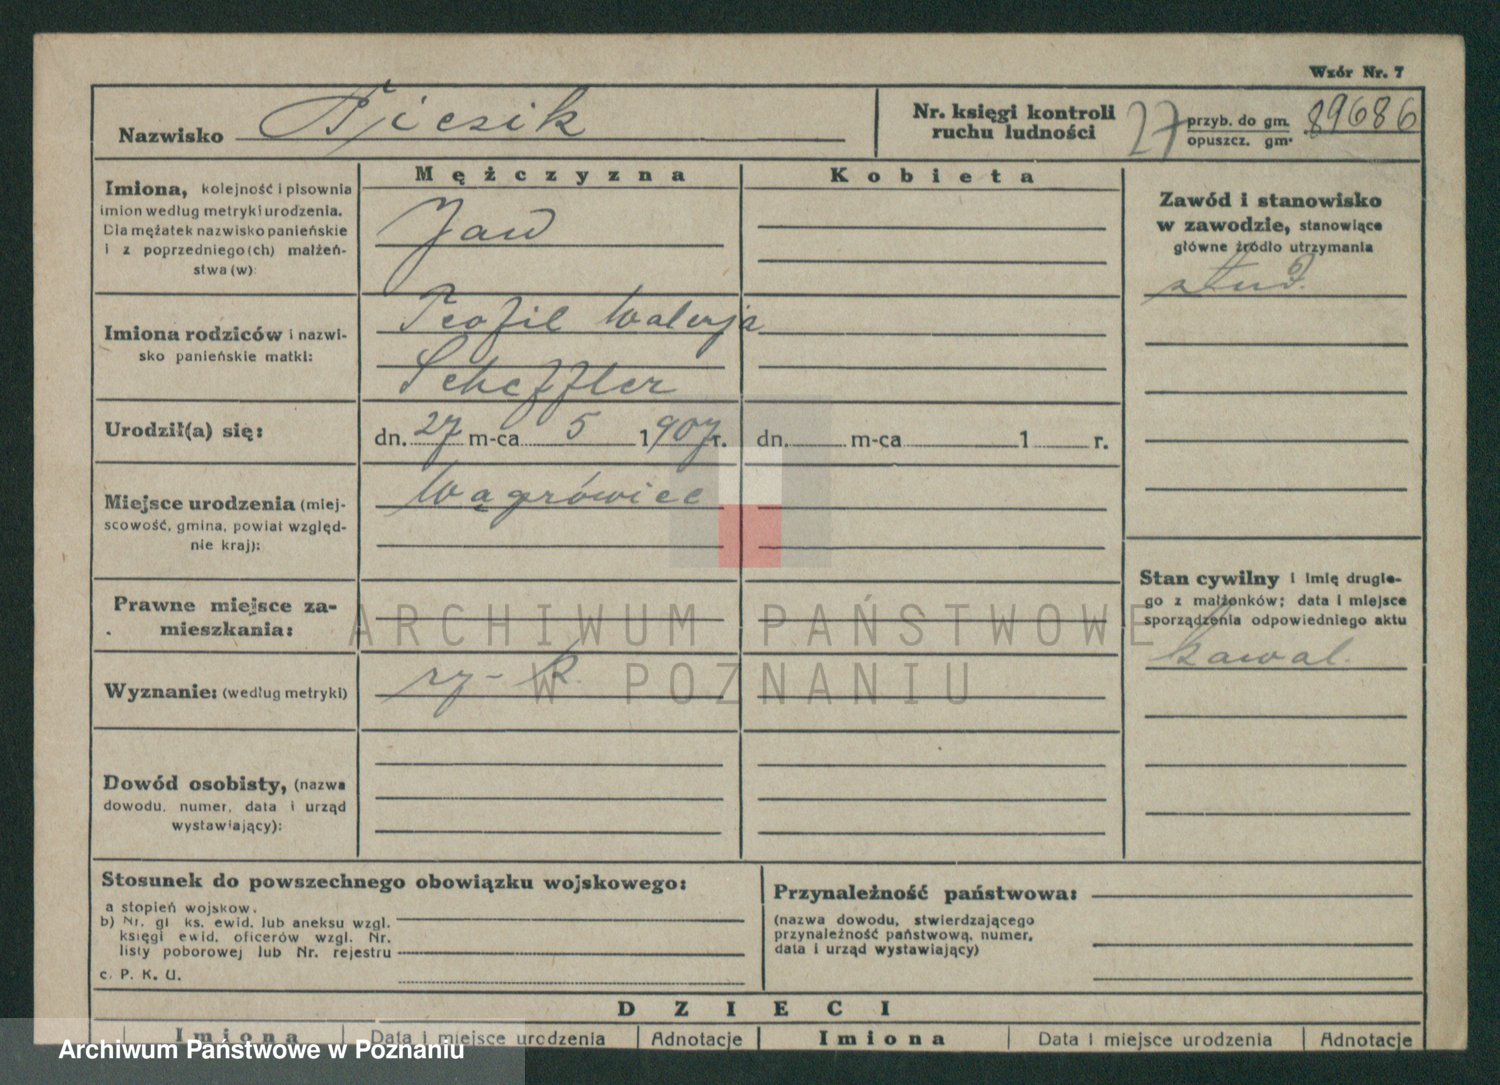 Wzór Nr. 7
Nazwisko
Nr. księgi kontroli
ruchu ludności
27
przyb. do gm.
opuszcz. gm.
89686
Mężczyzna
Kobieta
Imiona, kolejność i pisownia
imion według metryki urodzenia.
Dla mężatek nazwisko panieńskie
i z poprzedniego (ch) małżeń-
stwa (w):
Jan
Zawód i stanowisko
w zawodzie, stanowiące
główne źródło utrzymania
stud.
Imiona rodziców i nazwi-
sko panieńskie matki:
Teofil Walerja
Scheffler
Urodził(a) się:
dn. 27 m-ca 5 1907 r.
dn. m-ca 1 r.
Miejsce urodzenia (miej-
scowość, gmina, powiat względ-
nie kraj):
Wągrówiec
Stan cywilny i imię drugie-
go z małżonków; data i miejsce
sporządzenia odpowiedniego aktu
kawal.
Prawne miejsce za-
mieszkania:
ARCHIWUM PAŃSTWOWE
W POZNANIU
Wyznanie: (według metryki)
rz-k.
Dowód osobisty, (nazwa
dowodu, numer, data i urząd
wystawiający):
Stosunek do powszechnego obowiązku wojskowego:
a stopień wojskow.
b) Nr. gł ks. ewid. lub aneksu wzgl.
księgi ewid. oficerów wzgl. Nr.
listy poborowej lub Nr. rejestru
c. P. K. U.
Przynależność państwowa:
(nazwa dowodu, stwierdzającego
przynależność państwową, numer,
data i urząd wystawiający)
DZIECI
Imiona
Data i miejsce urodzenia
Adnotacje
Imiona
Data i miejsce urodzenia
Adnotacje
Archiwum Państwowe w Poznaniu